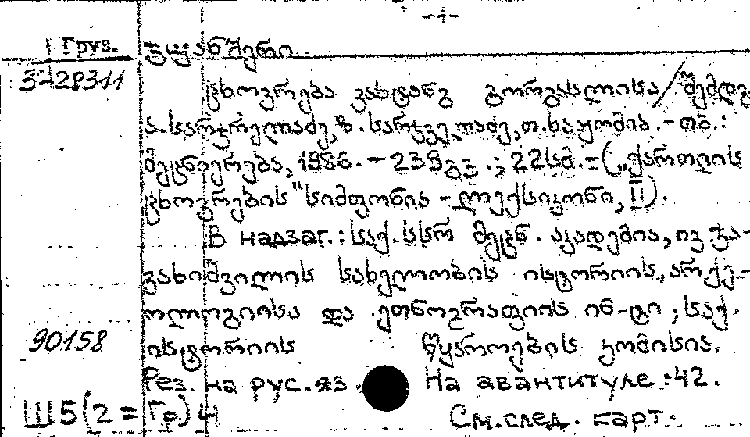 -1-
Груз. ჯუანშერი.
3-28311
ცხოვრება ვახტანგ გორგასლისა/შემდგ.
ა.სარჯველაძე,ზ.სარჯველაძე,თ.ხაჟომია.-თბ.:
მეცნიერება,1986.-239გვ.;22სმ.=(„ქართლის
ცხოვრების"სიმფონია-ლექსიკონი,II).
В надзаг.:საქ.სსრ მეცნ.აკადემია,ივ.ჯა-
ვახიშვილის სახელობის ისტორიის,არქე-
ოლოგიისა და ეთნოგრაფიის ინ-ტი,საქ.
90158 ისტორიის წყაროების კომისია.
Рез. на рус.яз. На авантитуле:42.
Ш5(2=Гр)4 См.след.карт.